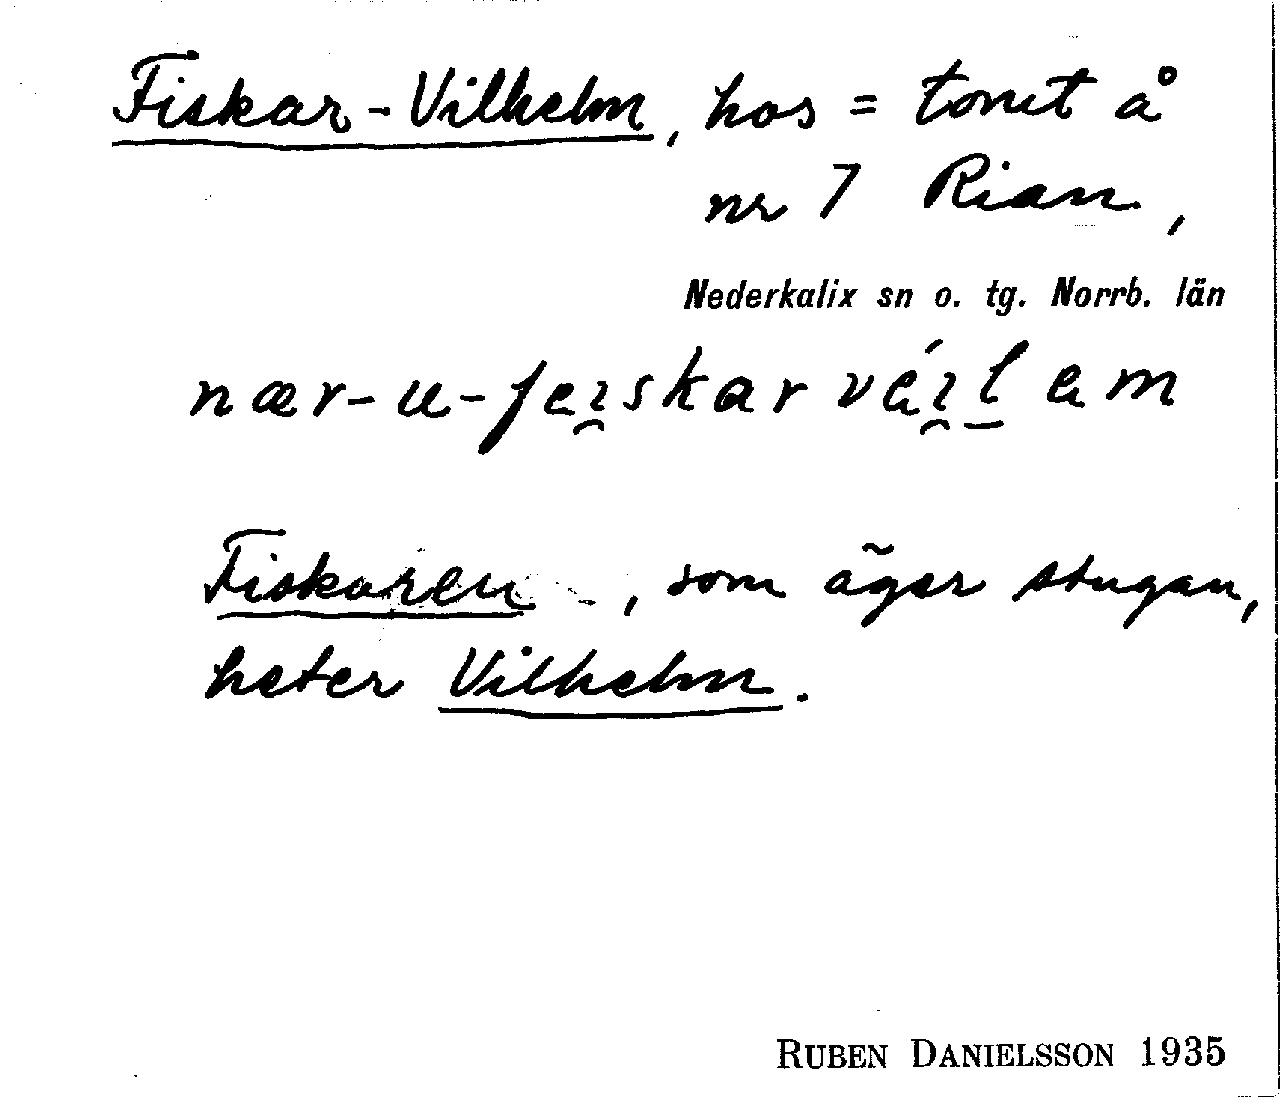 Fiskar-Vilhelm, hos = tomt å
nr 7 Rian,
Nederkalix sn o. tg. Norrb. län
nær-u-feı̯skar véı̯l̲am
Fiskaren, som äger stugan,
heter Vilhelm.
RUBEN DANIELSSON 1935